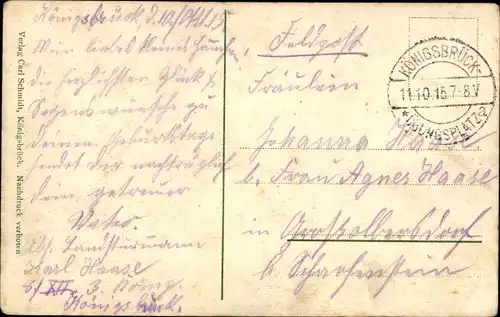 Königsbrück d. 10/10.15
Mein liebes kleines Hannchen
die herzlichsten Glück &
Segenswünsche zu
Deinem Geburtstage
sendet Dir nachträglich
Dein getreuer
Vater.
Abs. Landsturmann
Karl Haase
XII. 3. Komp.
Königsbrück.
Feldpost
Fräulein
Johanna Haase
b. Frau Agnes Haase
in Grossolbersdorf
b. Scharfenstein
KÖNIGSBRÜCK
11.10.15.7-8.V
*ÜBUNGSPLATZ*
Verlag Carl Schmidt, Königsbrück. Nachdruck verboten